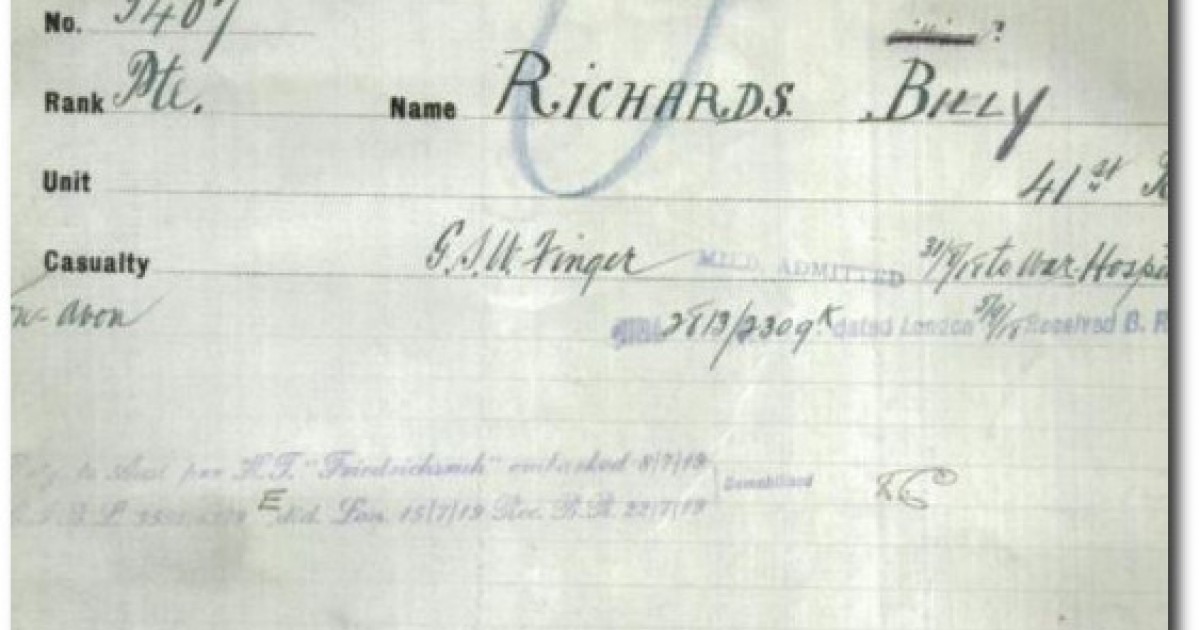 No. 5407
Rank Pte. Name RICHARDS. BILLY ?
Unit 41st
Casualty G.S.W. Finger MILD, ADMITTED 31/8/18 to War Hospi
n-Avon 2813/2309k dated London 5/9/18 Received B. R
to Aust per H.T. "Friedrichsruh" embarked 8/7/19 Demobilised
E dtd. Lon. 15/7/19 Rec. B.R. 22/7/19